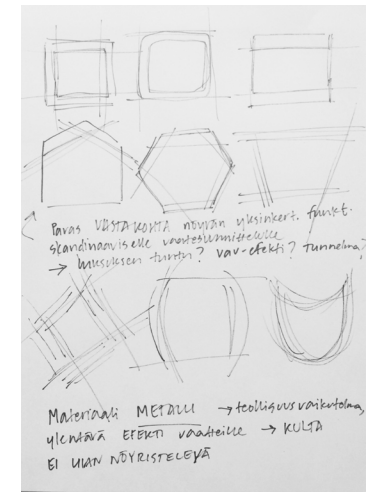 Paras VASTAKOHTA nöyrän yksinkert. funkt.
skandinaaviselle vaatesuunnittelulle
→ luksuksen tuntu? vav-efekti? Tunnelma?
Materiaali METALLI → teollisuusvaikutelma,
ylentävä EFEKTI vaatteille → KULTA
EI LIIAN NÖYRISTELEVÄ